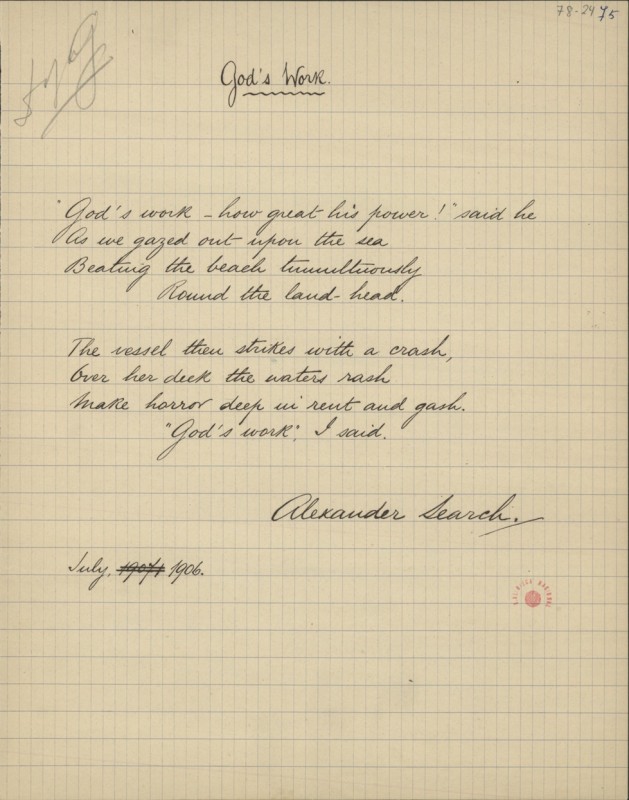 78-24 75
God's Work.
"God's work – how great his power!" said he
As we gazed out upon the sea
Beating the beach tumultuously
Round the land-head.
The vessel then strikes with a crash,
Over her deck the waters rash
Make horror deep in rent and gash.
"God's work", I said.
Alexander Search.
July, 1906.